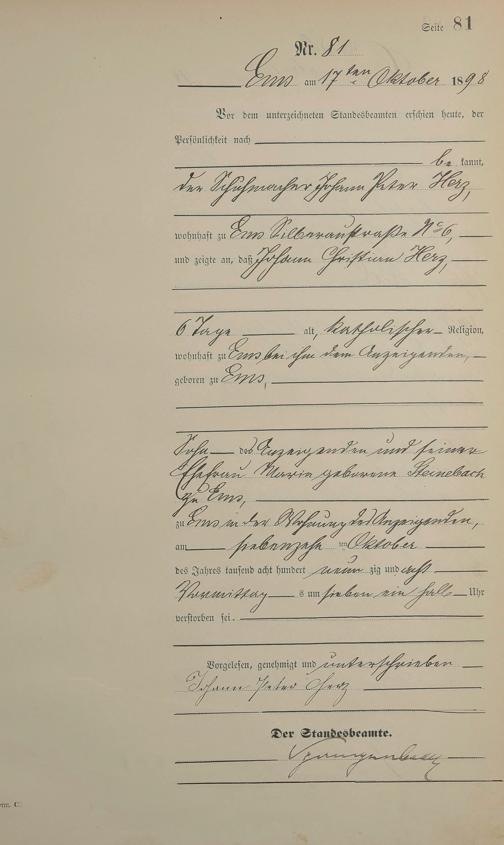 Seite 81
Nr. 81
Ems am 17ten Oktober 1898
Vor dem unterzeichneten Standesbeamten erschien heute, der
Persönlichkeit nach
be kannt,
der Schuhmacher Johann Peter Herz,
wohnhaft zu Ems Silberaustraße No 6,
und zeigte an, daß Johann Christian Herz,
6 Tage alt, katholischer Religion,
wohnhaft zu Ems bei ihm dem Anzeigenden,
geboren zu Ems,
Sohn des Anzeigenden und seiner
Ehefrau Maria geborene Steinebach
zu Ems,
zu Ems in der Wohnung des Anzeigenden,
am siebenzehn ten Oktober
des Jahres tausend acht hundert neun zig und acht
Vormittag s um sieben ein halb Uhr
verstorben sei.
Vorgelesen, genehmigt und unterschrieben
Johann Peter Herz
Der Standesbeamte.